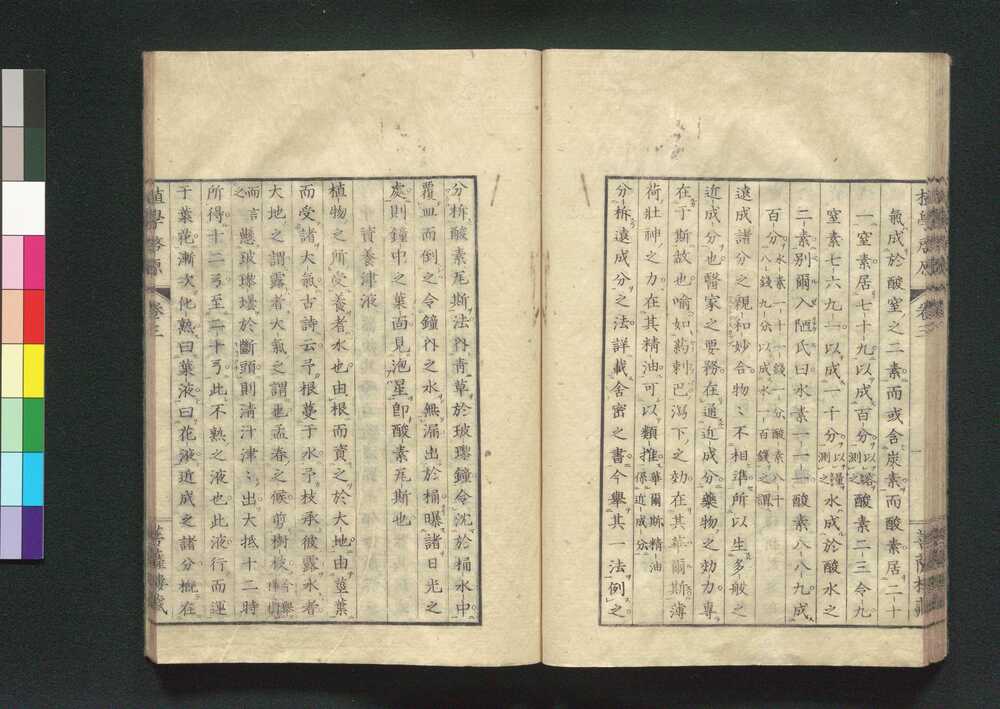 氣成於酸窒之二素而或含炭素而酸素居二十
一窒素居七十九以成百分以容測之酸素二三令九
窒素七六九一以成一千分以量測之水成於酸水之
二素別爾入陋氏曰水素一一一酸素八八九成
百分水素一十一錢一分酸素八十八錢九分以成水一百錢之謂
遠成諸分之親和妙合物〻不相準所以生多般之
近成分也醫家之要務在通近成分藥物之効力專
在于斯故也喻如葯剌巴瀉下之効在其華爾斯薄
荷壯神之力在其精油可以類推華爾斯精油係近成分
分柝遠成分之法詳載舍密之書今舉其一法例之
分柝酸素瓦斯法內青草於玻璨鐘令沈於桶水中
覆皿而倒之令鐘內之水無漏出於桶曝諸日光之
處則鐘中之葉面見泡星卽酸素瓦斯也
資養津液
植物之所受養者水也由根而資之於大地由莖葉
而受諸大氣古詩云予根蔓于水予枝承彼露水者
大地之謂露者大氣之謂也孟春之候剪樹枝
而言之懸玻璨壜於斷頭則清汁津〻出大抵十二時
所得十二弓至二十弓此不熟之液也此液行而運
于葉花漸次化熟曰葉液曰花液近成之諸分概在
植學啓原
卷三
菩薩樓藏